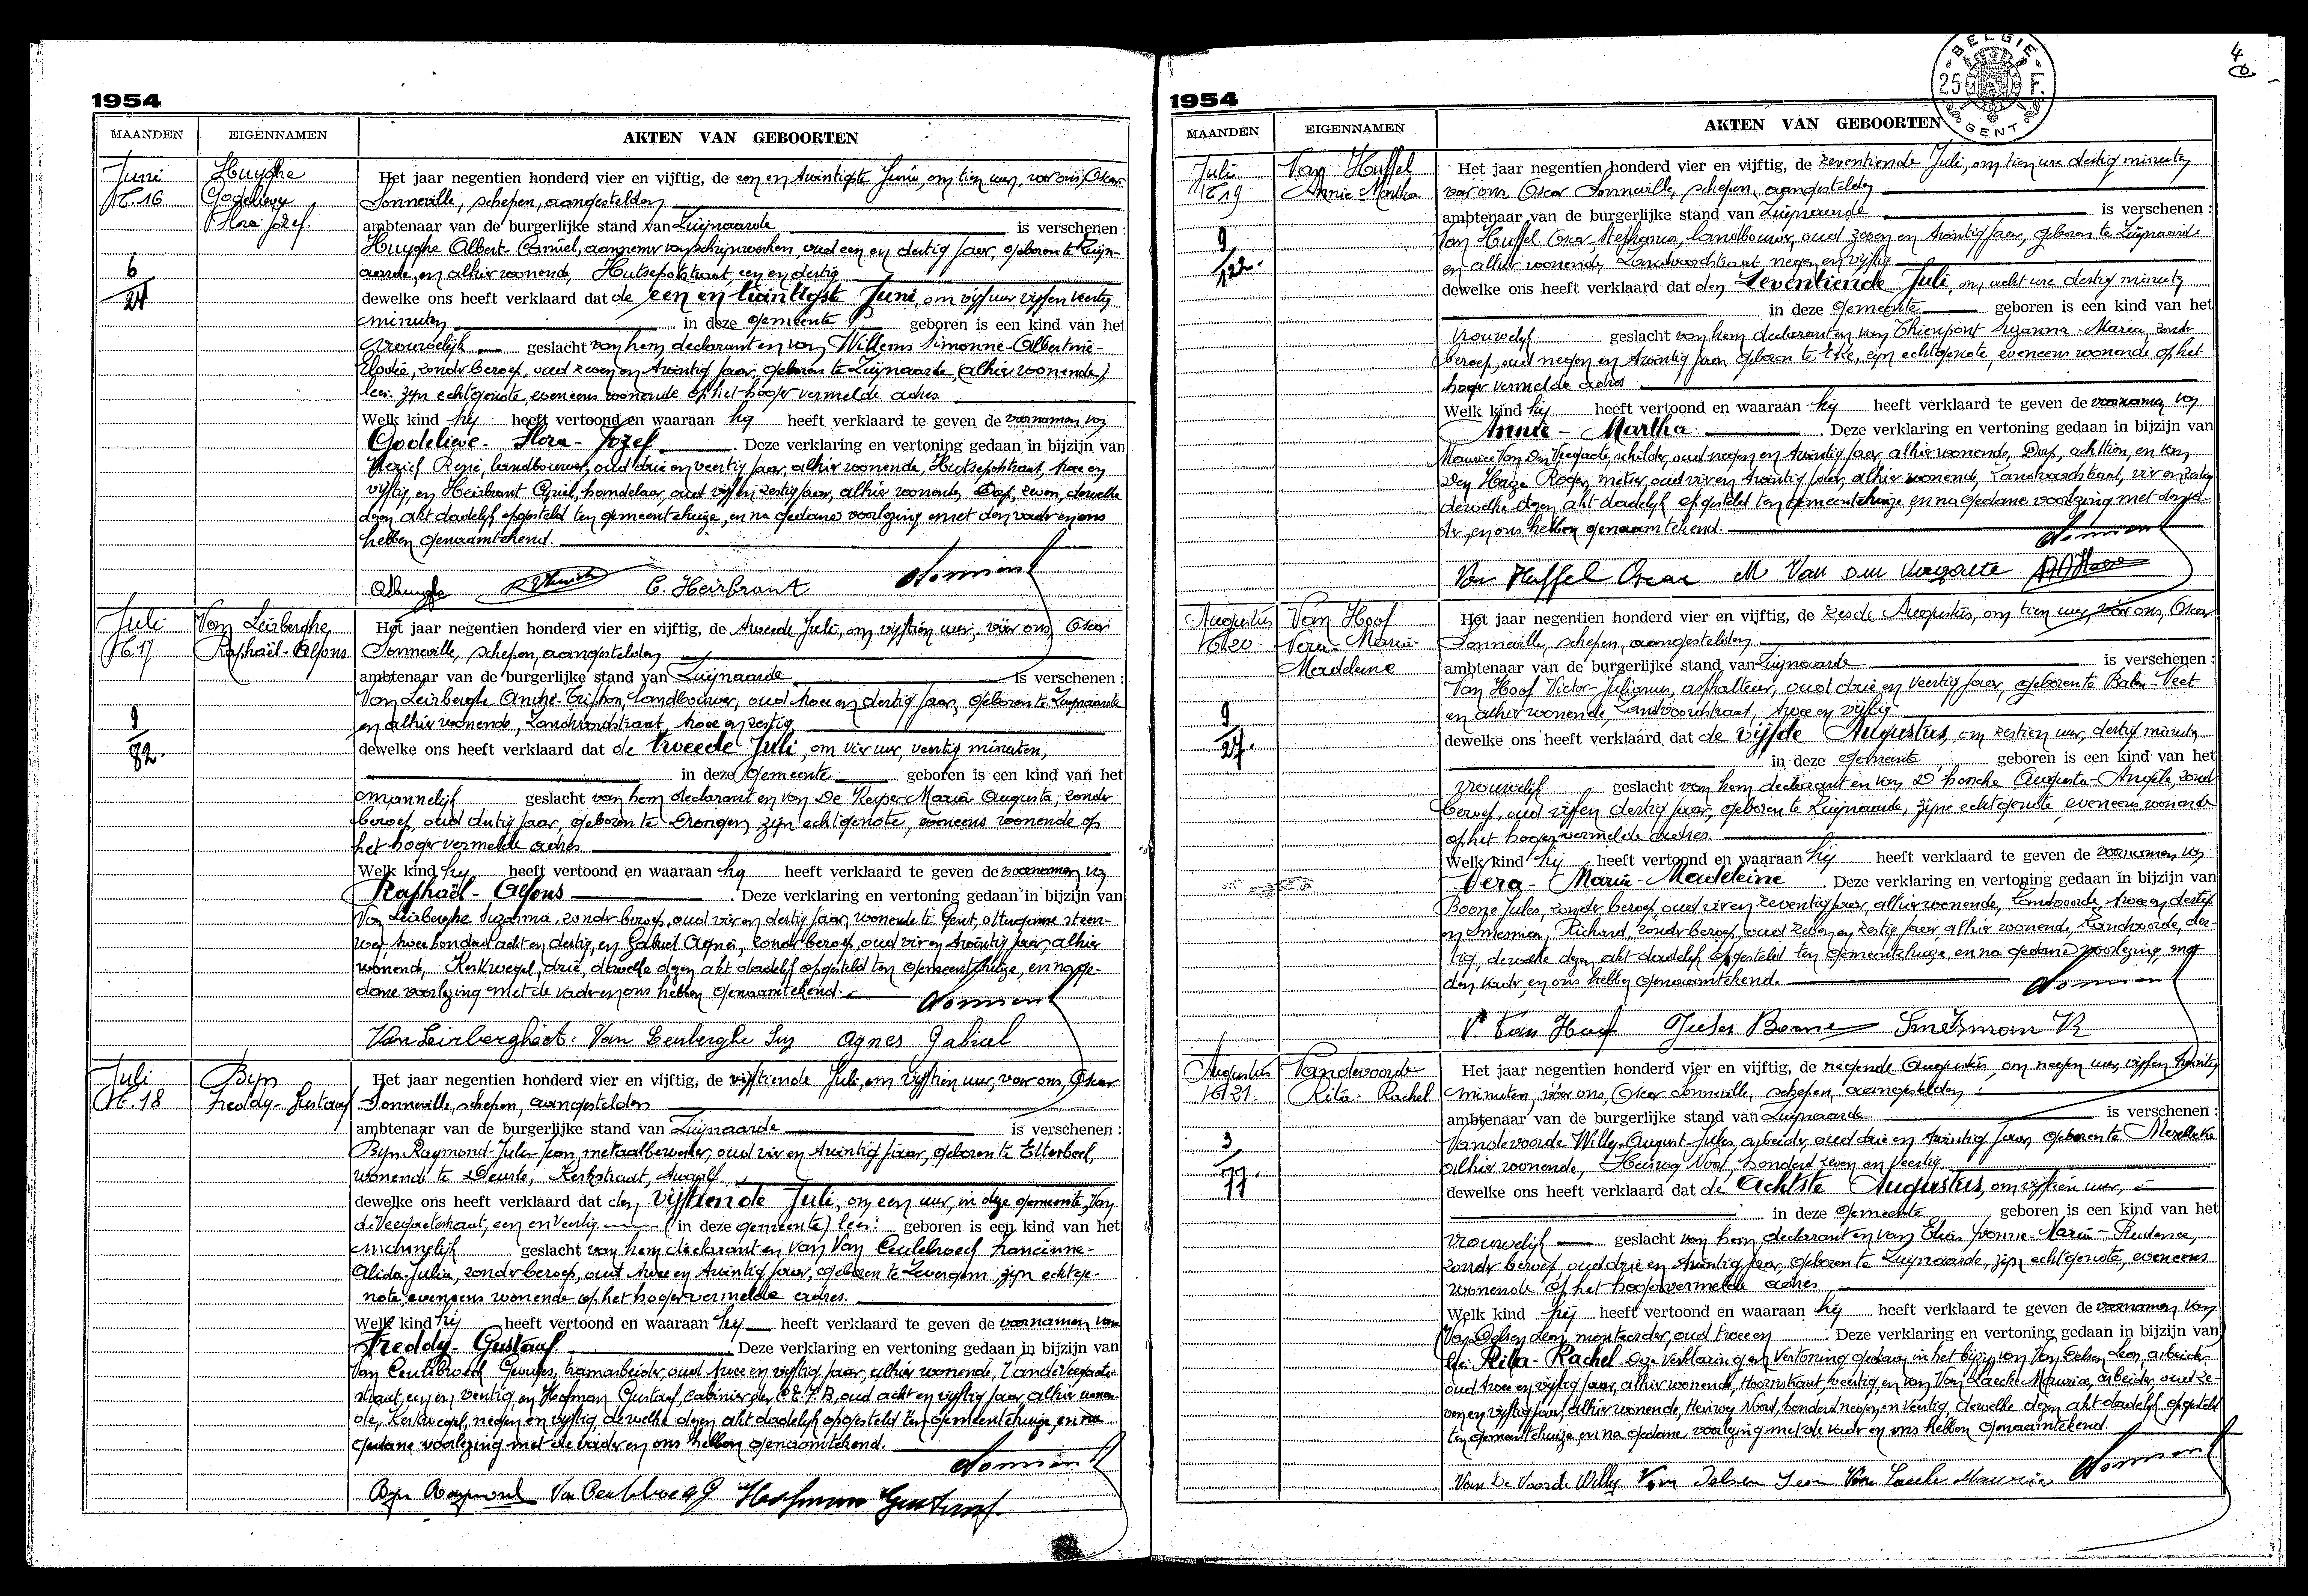 1954
MAANDEN EIGENNAMEN AKTEN VAN GEBOORTEN
Juni
N. 16
Huyghe
Godelieve
Flora Jozef.
6
24
Het jaar negentien honderd vier en vijftig, de een en twintigste Juni, om tien uur, voor ons, Oscar
Sonneville, schepen, aangestelden
ambtenaar van de burgerlijke stand van Zwijnaarde is verschenen :
Huyghe Albert-Camiel, aannemer van schrijnwerken, oud een en dertig jaar, geboren te Zwijn-
aarde, en alhier wonende, Hutsepotstraat, een en dertig
dewelke ons heeft verklaard dat de een en twintigste Juni, om vijf uur vijf en veertig
minuten in deze gemeente geboren is een kind van het
vrouwelijk geslacht van hem declarant en van Willems Simonne-Albertine-
Elodie, zonder beroep, oud zeven en twintig jaar, geboren te Zwijnaarde, (alhier wonende)
lees: zijn echtgenote, eveneens wonende op het hoger vermelde adres
Welk kind hij heeft vertoond en waaraan hij heeft verklaard te geven de voornamen van
Godelieve- Flora- Jozef. Deze verklaring en vertoning gedaan in bijzijn van
René, landbouwer, oud drie en veertig jaar, alhier wonende, Hutsepotstraat, twee en
vijftig, en Heirbrant Cyriel, handelaar, oud vijf en zestig jaar, alhier wonende, Dorp, zeven, dewelke
dezen akt dadelijk opgesteld ten gemeentehuize, en na gedane voorlezing met den vader en ons
hebben genaamtekend.
C. Heirbrant
Juli
N. 17
Van Leirberghe
Raphaël-Alfons
9
82.
Het jaar negentien honderd vier en vijftig, de tweede Juli, om vijftien uur, vóór ons, Oscar
Sonneville, schepen, aangestelden
ambtenaar van de burgerlijke stand van Zwijnaarde is verschenen :
Van Leirberghe André-Triphon, landbouwer, oud twee en dertig jaar, geboren te Zwijnaarde
en alhier wonende, Zandvoordstraat, twee en zestig
dewelke ons heeft verklaard dat de tweede Juli, om vier uur, veertig minuten,
in deze gemeente geboren is een kind van het
mannelijk geslacht van hem declarant en van De Keyser Maria Augusta, zonder
beroep, oud dertig jaar, geboren te Drongen, zijn echtgenote, eveneens wonende op
het hoger vermelde adres
Welk kind hij heeft vertoond en waaraan hij heeft verklaard te geven de voornamen van
Raphaël- Alfons. Deze verklaring en vertoning gedaan in bijzijn van
Van Leirberghe Suzanna, zonder beroep, oud vier en dertig jaar, wonende te Gent, Ottergemse steen-
weg, twee honderd acht en dertig, en Gabriel Agnes, zonder beroep, oud vier en twintig jaar, alhier
wonende, Kerkwegel, drie, dewelke dezen akt dadelijk opgesteld ten gemeentehuize, en na ge-
dane voorlezing met de vader en ons hebben genaamtekend.
Van Leirberghe Van Leirberghe Suz Agnes Gabriel
Juli
N. 18
Byn
Freddy-Gustaaf
Het jaar negentien honderd vier en vijftig, de vijftiende Juli, om vijftien uur, voor ons, Oscar
Sonneville, schepen, aangestelden
ambtenaar van de burgerlijke stand van Zwijnaarde is verschenen :
Byn Raymond-Jules-Jean, metaalbewerker, oud vier en twintig jaar, geboren te Etterbeek,
wonende te Deurle, Kerkstraat, twaalf
dewelke ons heeft verklaard dat den vijftiende Juli, om een uur, in deze gemeente, Van
de Veegaetestraat, een en veertig (in deze gemeente) lees: geboren is een kind van het
mannelijk geslacht van hem declarant en van Van Ceulebroeck Francinne-
Alida-Julia, zonder beroep, oud twee en twintig jaar, geboren te Zevergem, zijn echtge-
note, eveneens wonende op het hoger vermelde adres.
Welk kind hij heeft vertoond en waaraan hij heeft verklaard te geven de voornamen van
Freddy- Gustaaf Deze verklaring en vertoning gedaan in bijzijn van
Van Ceulebroeck Georges, tramarbeider, oud twee en vijftig jaar, alhier wonende, Vande Veegaete-
straat, een en veertig, en Hofman Gustaaf, cabinier der N.M.B.S., oud acht en vijftig jaar, alhier wonen-
de, Kerkwegel, negen en vijftig, dewelke dezen akt dadelijk opgesteld ten gemeentehuize, en na
gedane voorlezing met de vader en ons hebben genaamtekend.
Byn Raymond Van Ceulebroeck G Hofman Gustaaf.
1954
BELGIE 25 F. GENT
MAANDEN EIGENNAMEN AKTEN VAN GEBOORTEN
Juli
N. 19
Van Huffel
Annie-Martha
9
122.
Het jaar negentien honderd vier en vijftig, de zeventiende Juli, om tien ure dertig minuten
voor ons, Oscar Sonneville, schepen, aangestelden
ambtenaar van de burgerlijke stand van Zwijnaarde is verschenen :
Van Huffel Oscar-Stephanus, landbouwer, oud zeven en twintig jaar, geboren te Zwijnaarde
en alhier wonende, Zandvoordstraat, negen en vijftig
dewelke ons heeft verklaard dat den Zeventiende Juli, om acht ure dertig minuten
in deze gemeente geboren is een kind van het
vrouwelijk geslacht van hem declarant en van Thienpont Suzanna-Maria, zonder
beroep, oud negen en twintig jaar, geboren te Eke, zijn echtgenote, eveneens wonende op het
hoger vermelde adres
Welk kind hij heeft vertoond en waaraan hij heeft verklaard te geven de voornamen van
Annie- Martha. Deze verklaring en vertoning gedaan in bijzijn van
Maurice Van Den Veegaete, schilder, oud negen en twintig jaar, alhier wonende, Dorp, achttien, en van
Den Haeze Roger, metser, oud vier en twintig jaar, alhier wonende, Zandvoordstraat, vier en zestig
dewelke dezen akt dadelijk opgesteld ten gemeentehuize, en na gedane voorlezing met den va-
der, en ons hebben genaamtekend.
Van Huffel Oscar M Van den Veegaete
Augustus
N. 20
Van Hoof
Vera-Maria-
Madeleine
9
27.
Het jaar negentien honderd vier en vijftig, de zesde Augustus, om tien uur, vóór ons, Oscar
Sonneville, schepen, aangestelden
ambtenaar van de burgerlijke stand van Zwijnaarde is verschenen :
Van Hoof Victor-Julianus, asphalteur, oud drie en veertig jaar, geboren te
en alhier wonende, Zandvoordstraat, twee en vijftig
dewelke ons heeft verklaard dat de vijfde Augustus, om zestien uur, dertig minuten
in deze gemeente geboren is een kind van het
vrouwelijk geslacht van hem declarant en van Augusta-Angèle, zonder
beroep, oud vijf en dertig jaar, geboren te Zwijnaarde, zijne echtgenote, eveneens wonende
op het hoger vermelde adres
Welk kind hij heeft vertoond en waaraan hij heeft verklaard te geven de voornamen van
Vera- Maria- Madeleine. Deze verklaring en vertoning gedaan in bijzijn van
Boone Jules, zonder beroep, oud vier en zeventig jaar, alhier wonende, Zandvoorde, twee en dertig
en Smesman, Richard, zonder beroep, oud zeven en zestig jaar, alhier wonende, Zandvoorde, der-
tig, dewelke dezen akt dadelijk opgesteld ten gemeentehuize, en na gedane voorlezing, met
den vader, en ons hebben genaamtekend.
V. Van Hoof Jules Boone Smesman R
Augustus
N. 21.
Vandevoorde
Rita- Rachel
3
77.
Het jaar negentien honderd vier en vijftig, de negende Augustus, om negen uur, vijf en twintig
minuten, vóór ons, Oscar Sonneville, schepen, aangestelden
ambtenaar van de burgerlijke stand van Zwijnaarde is verschenen :
Vandevoorde Willy-August-Jules, arbeider, oud drie en twintig jaar, geboren te Merelbeke
alhier wonende, Heirweg Noord, honderd zeven en veertig
dewelke ons heeft verklaard dat de Achtste Augustus, om vijftien uur,
in deze gemeente geboren is een kind van het
vrouwelijk geslacht van hem declarant en van Yvonne-Maria-Prudence,
zonder beroep, oud drie en twintig jaar, geboren te Zwijnaarde, zijn echtgenote, eveneens
wonende op het hoger vermelde adres
Welk kind hij heeft vertoond en waaraan hij heeft verklaard te geven de voornamen van
(Van Dolsen Leon, oud twee en Deze verklaring en vertoning gedaan in bijzijn van
lees: Rita- Rachel. Deze verklaring en vertoning gedaan in het bijzijn van Van Dolsen Leon, arbeider,
oud twee en vijftig jaar, alhier wonende, Hoornstraat, veertig, en van Van Laecke Maurice, arbeider, oud ze-
ven en vijftig jaar, alhier wonende, Heirweg Noord, honderd negen en veertig, dewelke dezen akt dadelijk opgesteld
ten gemeentehuize, en na gedane voorlezing met de vader en ons hebben genaamtekend.
Van De Voorde Willy Van Dolsen Leon Van Laecke Maurice